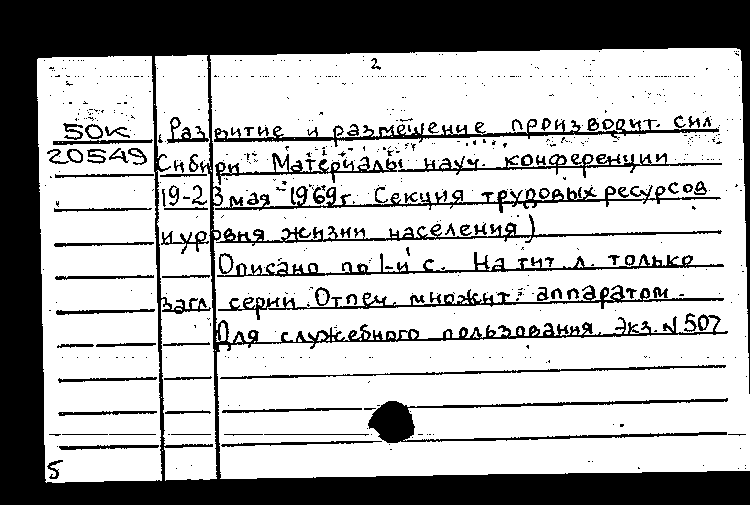 2
50к Развитие и размещение производит. сил
20549 Сибири. Материалы науч. конференции
19-23 мая 1969г. Секция трудовых ресурсов
и уровня жизни населения)
Описано по 1-й с. На тит. л. только
загл. серии. Отпеч. множит. аппаратом.
Для служебного пользования. Экз. N 507
5